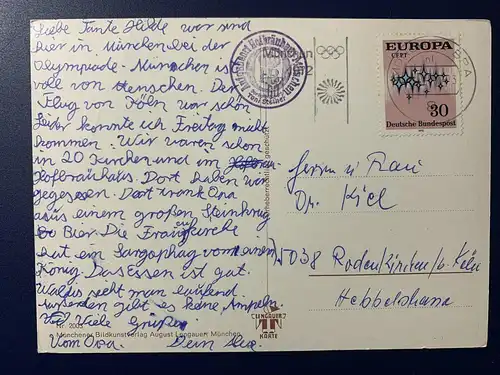 Liebe Tante Hilde wir sind
hier in München bei der
Olympiade. München ist
voll von Menschen. Der
Flug von Köln war schön
Leider konnte ich Freitag nicht
kommen. Wir waren schon
in 20 Kirchen und im
Hofbräuhaus. Dort haben wir
gegessen. Dort trank Opa
aus einem großen Steinkrug
Bier. Die Frauenkirche
hat ein Sargophag vom einem
König. Das Essen ist gut.
sieht man laufend
gibt es keine Ampeln.
Viele Grüße
Vom Opa. Dein
Nr. 2003
Münchener Bildkunstverlag August Lengauer, München
Urheberrechtlich geschützt
LENGAUER
KARTE
EUROPA
CEPT
30
Deutsche Bundespost
Herrn u Frau
Dr. Kiel
5038 Rodenkirchen/b. Köln